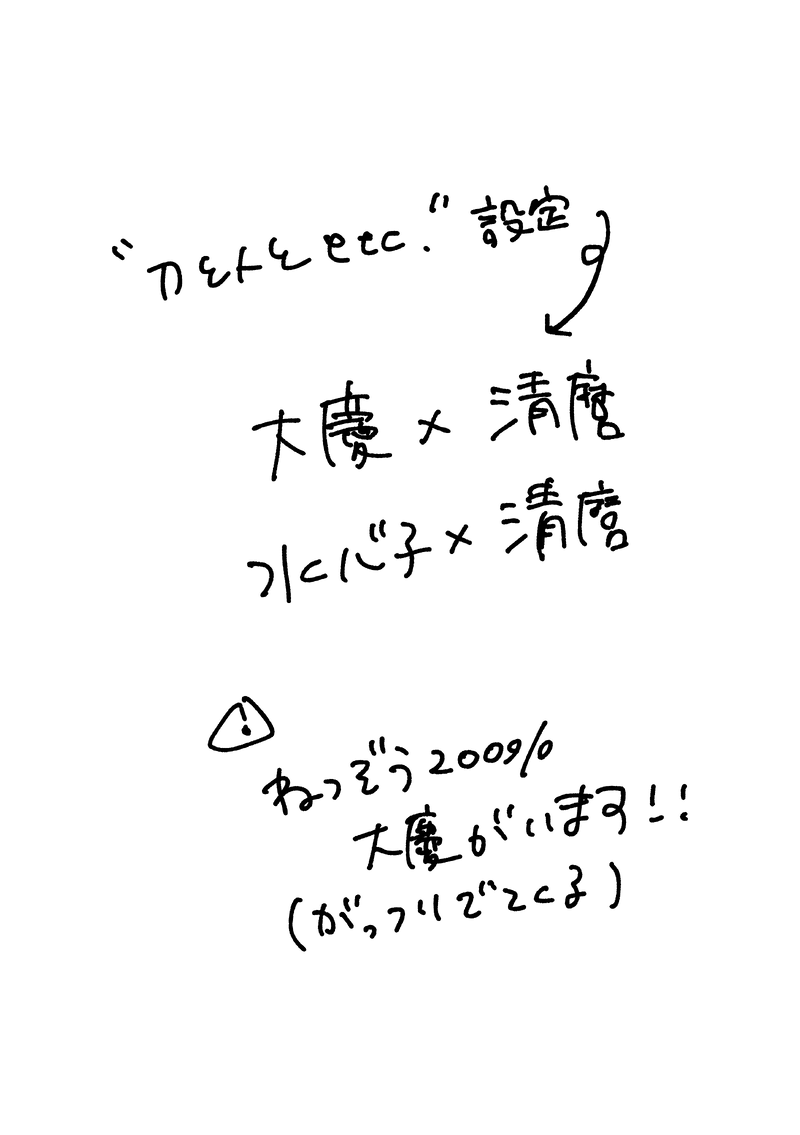 "カヲトヲetc." 設定
大慶×清麿
水心子×清麿
ねつぞう200%
大慶がいます!!
(がっつりでてくる)